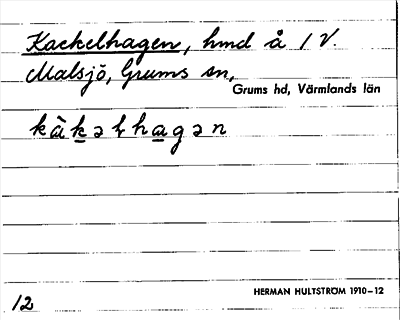 Kackelhagen, hmd å 1 V.
Malsjö, Grums sn,
Grums hd, Värmlands län
kàkəlhagən
HERMAN HULTSTRÖM 1910–12
12